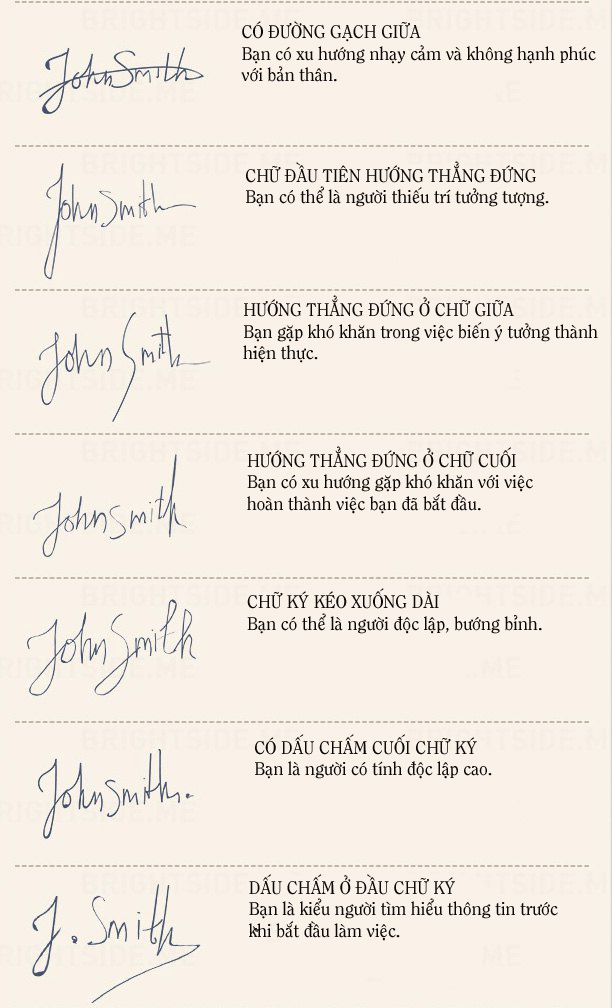 John Smith
CÓ ĐƯỜNG GẠCH GIỮA
Bạn có xu hướng nhạy cảm và không hạnh phúc
với bản thân.
John Smith
CHỮ ĐẦU TIÊN HƯỚNG THẲNG ĐỨNG
Bạn có thể là người thiếu trí tưởng tượng.
John Smith
HƯỚNG THẲNG ĐỨNG Ở CHỮ GIỮA
Bạn gặp khó khăn trong việc biến ý tưởng thành
hiện thực.
John Smith
HƯỚNG THẲNG ĐỨNG Ở CHỮ CUỐI
Bạn có xu hướng gặp khó khăn với việc
hoàn thành việc bạn đã bắt đầu.
John Smith
CHỮ KÝ KÉO XUỐNG DÀI
Bạn có thể là người độc lập, bướng bỉnh.
John Smith.
CÓ DẤU CHẤM CUỐI CHỮ KÝ
Bạn là người có tính độc lập cao.
J. Smith
DẤU CHẤM Ở ĐẦU CHỮ KÝ
Bạn là kiểu người tìm hiểu thông tin trước
khi bắt đầu làm việc.
BRIGHTSIDE.ME